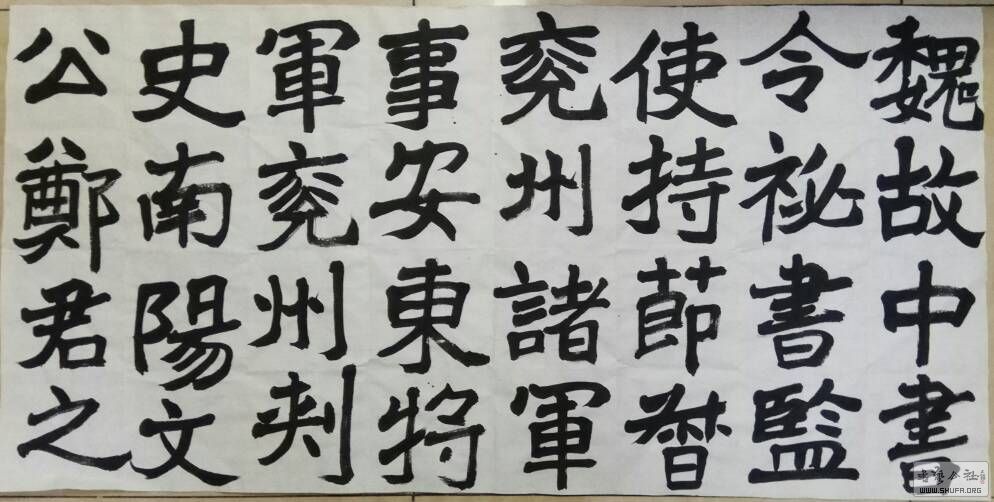 魏故中書
令祕書監
使持節督
兖州諸軍
事安東將
軍兖州刾
史南陽文
公鄭君之
WWW.SHUFA.ORG